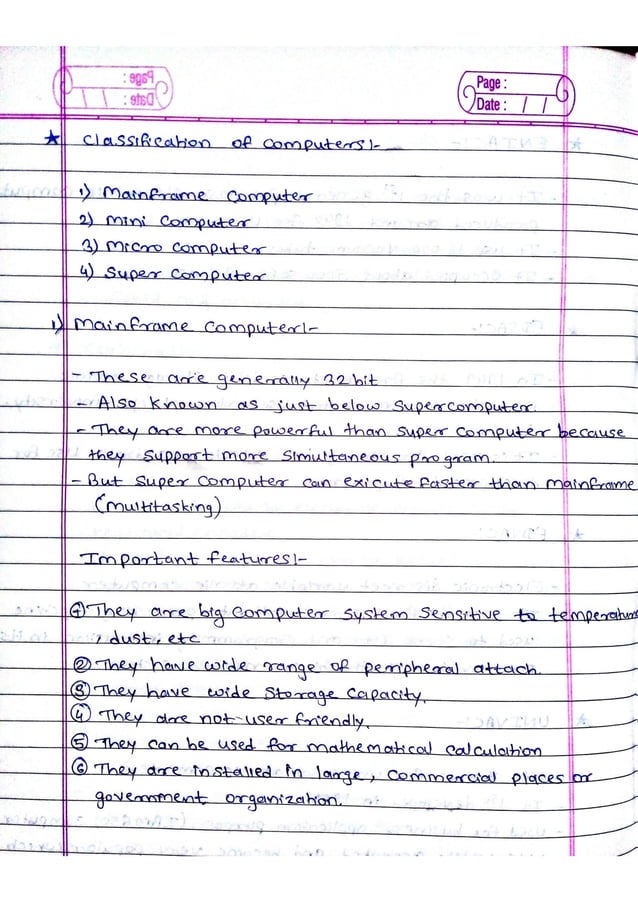 Page :
Date : / /
★ Classification of computers:-
1) Mainframe Computer
2) Mini Computer
3) Micro Computer
4) Super Computer
1) Mainframe Computer:-
- These are generally 32 bit
- Also known as just below supercomputer.
- They are more powerful than super computer because
they support more simultaneous program.
- But super computer can exicute faster than mainframe
(multitasking)
Important features:-
① They are big computer system sensitive to temperature
, dust, etc
② They have wide range of peripheral attach.
③ They have wide storage capacity.
④ They are not user friendly.
⑤ They can be used for mathematical calculation
⑥ They are installed in large, commercial places or
government organization.